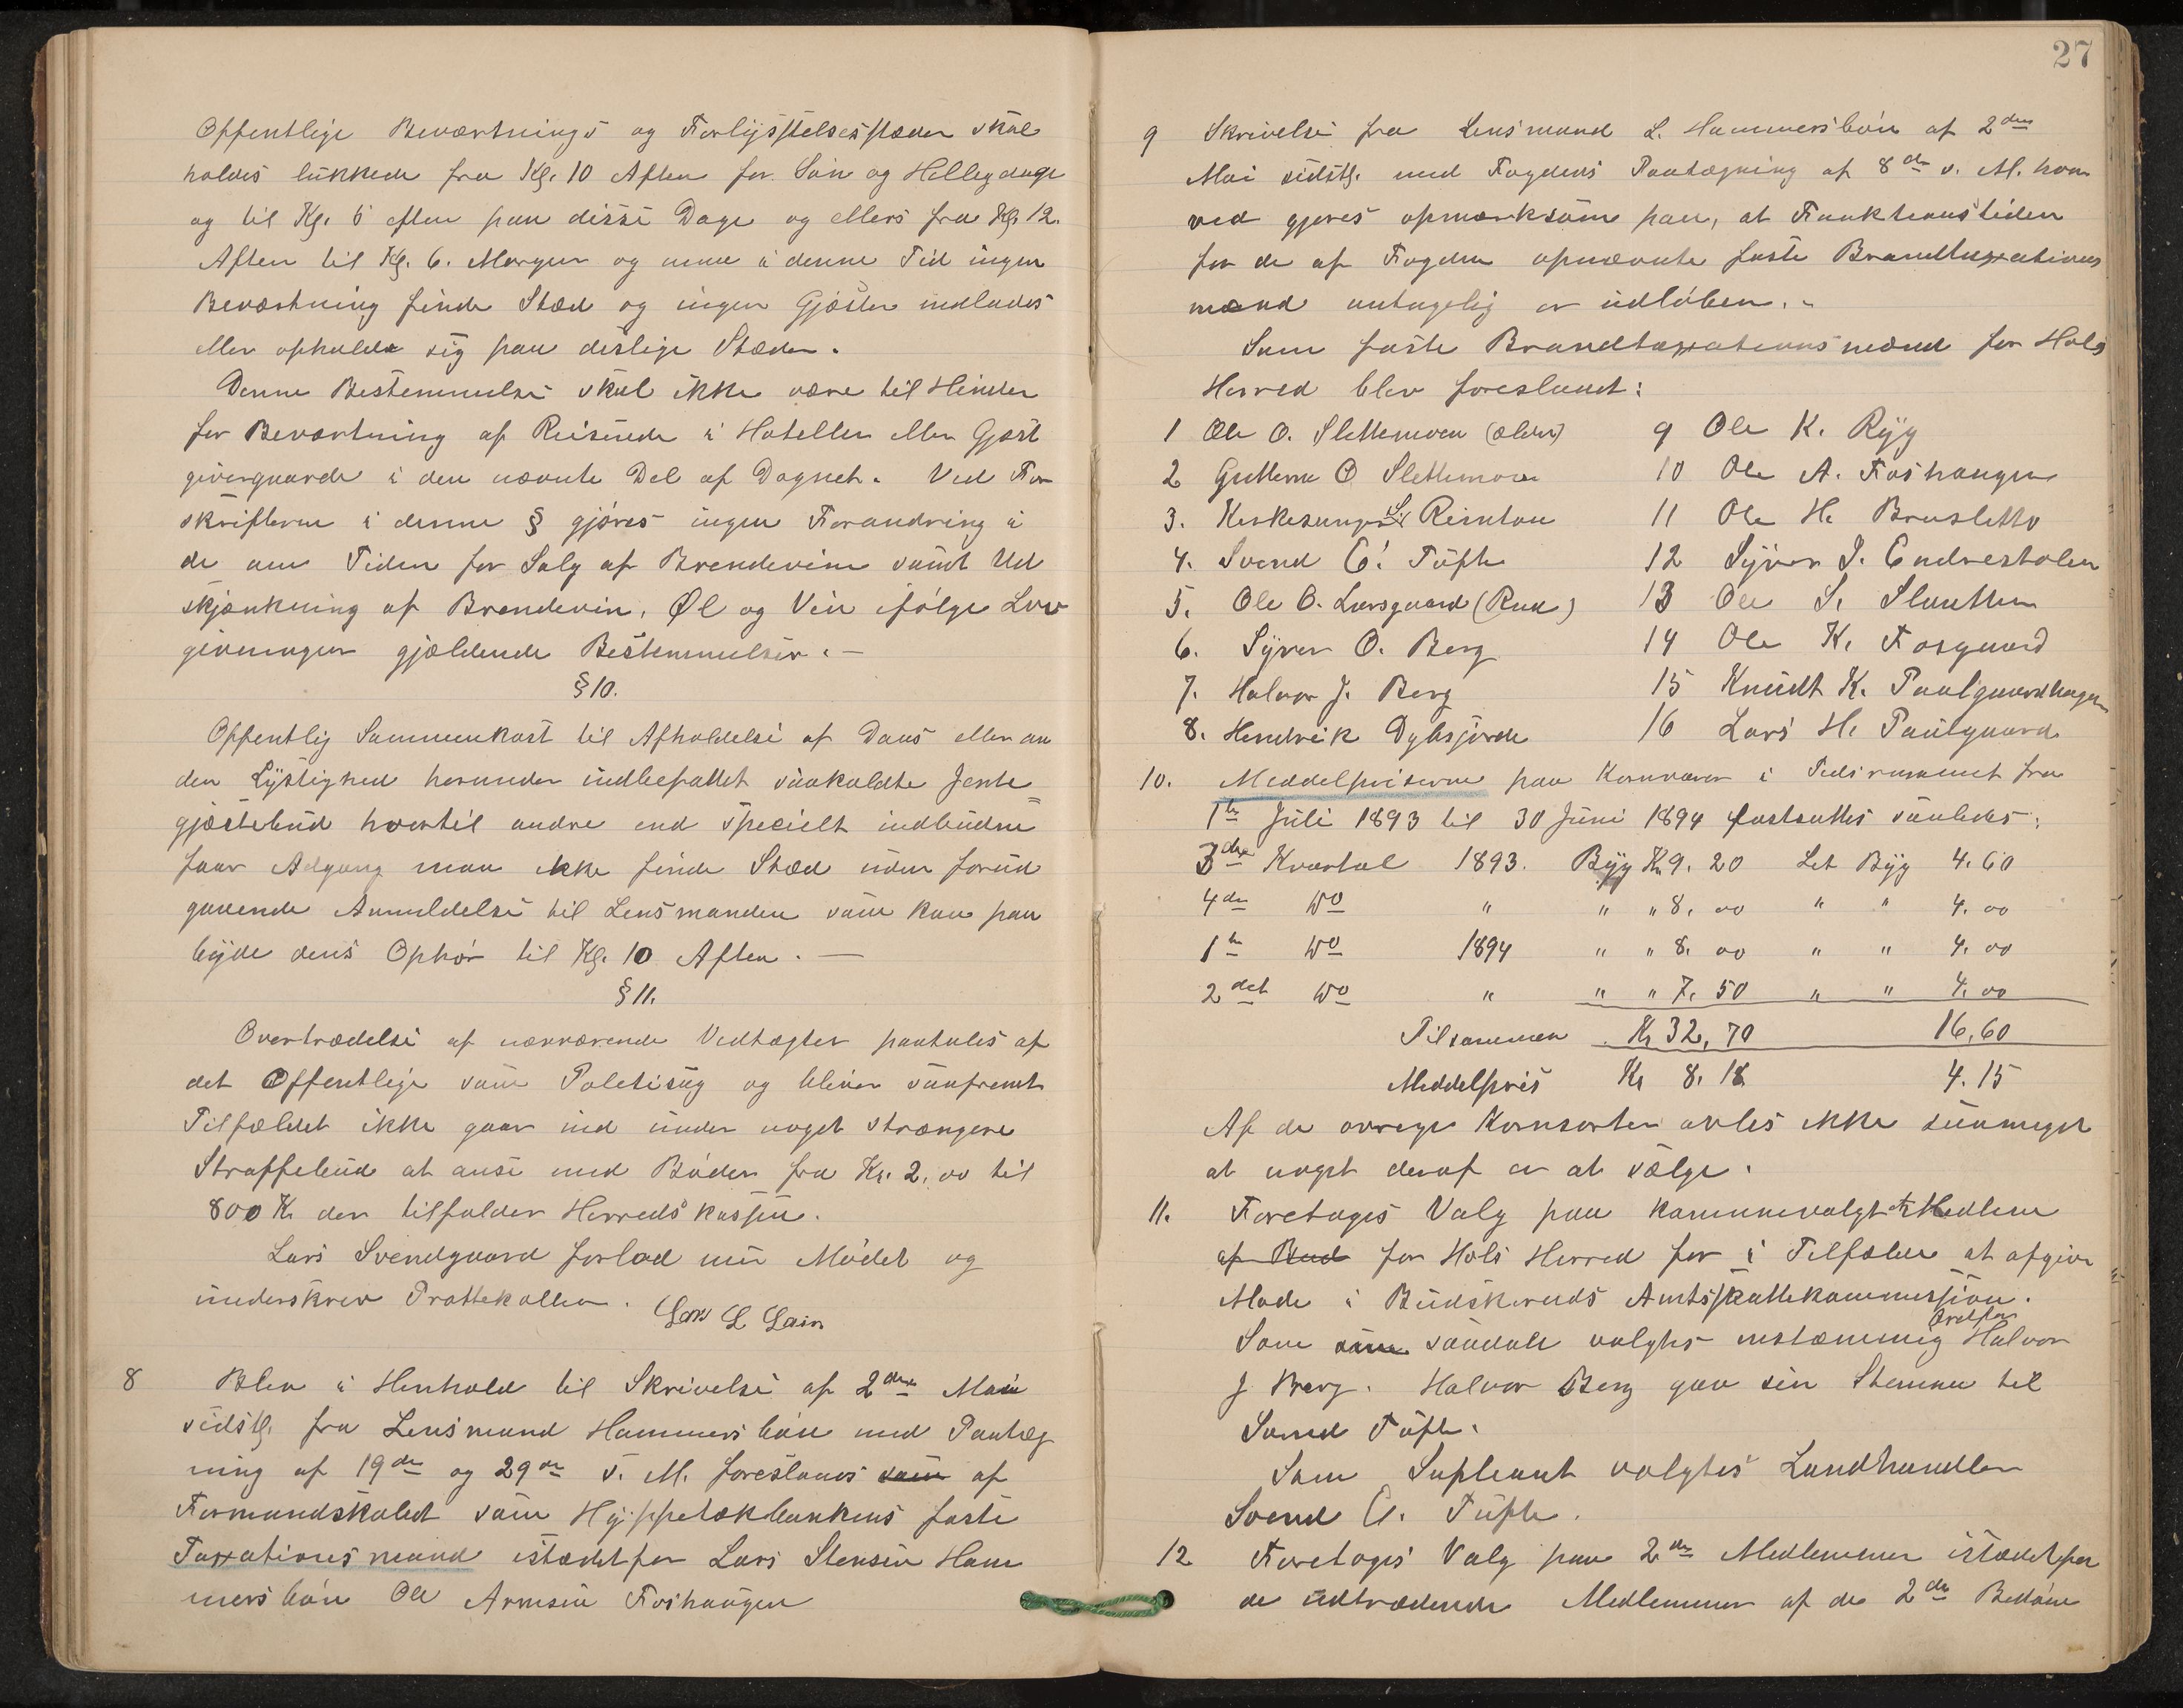 Offentlige Beværtnings og Forlystelsesstæder skal
holdes lukkede fra Kl. 10 Aften for Søn og Helligdage
og til Kl. 6 eften paa disse Dage og ellers fra Kl 12.
Aften til Kl. 6. Morgen og maa i denne Tid ingen
Beværtning finde Stæd og ingen Gjæster indlades
eller opholde sig paa deslige Stæder.
Denne Bestemmelse skal ikke være til Hinder
for Beværtning af Reisende i Hoteller eller Gjæst
givergaarde i den nævnte Del af Døgnet. Ved For
skrifterne i denne § gjøres ingen Forandring i
de om Tiden for Salg af Brændevin samt Ud
skjænkning af Brændevin, Øl og Vin ifølge Lov
givningen gjældende Bestemmelser. —
§ 10.
Offentlig Sammenkost til Afholdelse af Dans eller an
den Lystighed herunder indbefattet saakaldte Jente
gjæstebud hvortil andre end specielt indbudne
faar Adgang maa ikke finde Stæd uden forud
gaaende Anmeldelse til Lensmanden som kan paa
byde dens Ophør til Kl. 10 Aften. —
§ 11.
Overtrædelse af nærværende Vedtægter paatales af
det Offentlige som Politisag og bliver saafremt
Tilfældet ikke gaar ind under noget strængere
Straffebud at anse med Bøder fra Kr. 2,00 til
800 Kr der tilfalder Herredskassen.
Lars Svendgaard forlod nu Mødet og
underskrev Prottekollen. Lars L Lain
8 Blev i Henhold til Skrivelse af 2den Mai
sidstl. fra Lensmand Hammersbøn med Paateg
ning af 19de og 29de s. M. foreslaaes som af
Formandskabet som Hyppotekbankens faste
Taxationsmand istædetfor Lars Stensen Ham
mersbøn Ole Arnesen Foshaugen
27
9 Skrivelse fra Lensmand L. Hammersbøn af 2den
Mai sidstl. med Fogdens Paategning af 8de s. M. hvor
ved gjøres opmærksom paa, at Funktionstiden
for de af Fogden opnævnte faste Brandtaxations
mænd antagelig er udløben. -
Som faste Brandtaxationsmænd for Hols
Herred blev foreslaaet:
1 Ole O. Slettemoen (ældre) 9 Ole K. Ryg
2 Guttorm O Slettemoen 10 Ole A. Foshaugen
3. Kirkesanger S. Reinton 11 Ole H. Brusletto
4. Svend E. Tufte 12 Syver J. Endrestolen
5. Ole O. Larsgaard (Rud) 13 Ole S. Slaatten
6. Syver O. Berg 14 Ole K. Fosgaard
7. Halvor J. Berg 15 Knudt K. Paulgaardhagen
8. Hendrik Dybsjorde 16 Lars H. Paulgaard
10. Meddelpriserne paa Kornvarer i Tidsrummet fra
1te Juli 1893 til 30 Juni 1894 fastsattes saaledes:
3die Kvartal 1893. Byg Kr 9. 20 Let Byg 4. 60
4de Do " " " 8. 00 " " 4. 00
1te Do 1894 " " 8. 00 " " 4. 00
2det Do " " " 7. 50 " " 4. 00
Tilsammen Kr 32,70 16,60
Meddelpris Kr 8. 18 4. 15
Af de øvrige Kornsorter avles ikke saameget
at noget deraf er at sælge.
11. Foretages Valg paa kommunevalgt Medlem
af Bud for Hols Herred for i Tilfælde at afgive
Møde i Buskeruds Amtsskattekommission.
Som som saadan valgtes enstæmmig Halvor
J Berg. Halvor Berg gav sin Stemme til
Svend Tufte.
Som Supleant valgtes Landhandler
Svend E. Tufte.
12 Foretages Valg paa 2de Medlemmer istædetfor
de udtrædende Medlemmer af de 2de Bedøm